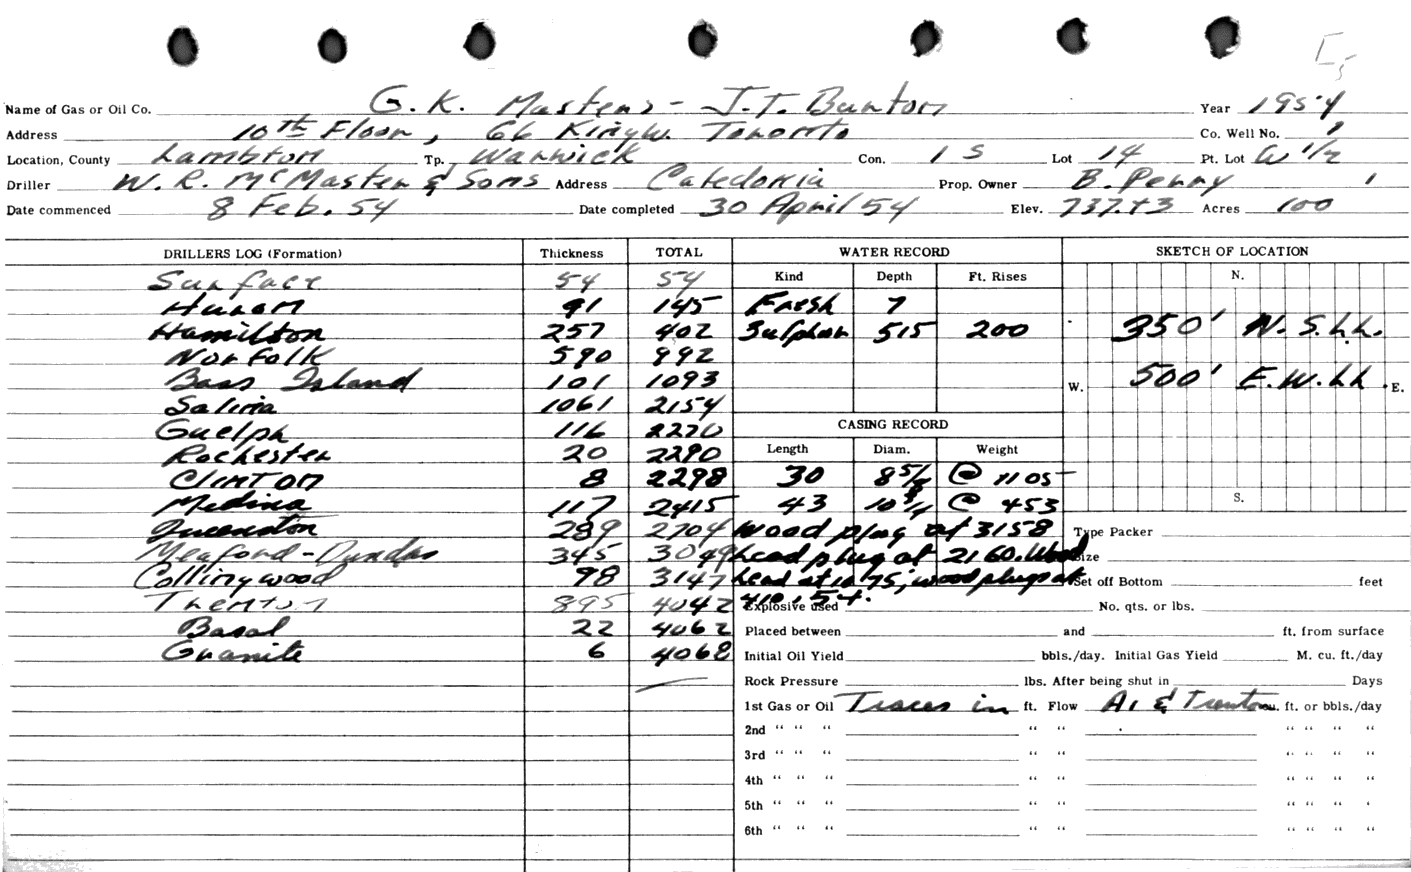 Name of Gas or Oil Co. G. K. Masters - J. T. Bunton Year 1954
Address 10th Floor, 66 King W. Toronto Co. Well No. 1
Location, County Lambton Tp. Warwick Con. 1 S Lot 14 Pt. Lot W 1/2
Driller W. R. McMaster & Sons Address Caledonia Prop. Owner B. Penny
Date commenced 8 Feb. 54 Date completed 30 April 54 Elev. 737.43 Acres 100
DRILLERS LOG (Formation) Thickness TOTAL WATER RECORD SKETCH OF LOCATION
Kind Depth Ft. Rises N.
Surface 54 54
Huron 91 145 Fresh 7
Hamilton 257 402 Sulphur 515 200 350' N. S.L.L.
Norfolk 590 992
Bass Island 101 1093 W. 500' E.W.LL E.
Salina 1061 2154
Guelph 116 2270 CASING RECORD
Rochester 20 2290 Length Diam. Weight
Clinton 8 2298 30 8 5/8 @ 1105
Medina 117 2415 43 10 3/4 @ 453 S.
Queenston 289 2704 Wood plug at 3158 Type Packer
Meaford-Dundas 345 3049 Lead plug at 2160. Wood Size
Collingwood 98 3147 Lead at 1075; wood plugs at Set off Bottom feet
Trenton 895 4042 410, 54. Explosive used No. qts. or lbs.
Basal 22 4062 Placed between and ft. from surface
Granite 6 4068 Initial Oil Yield bbls./day. Initial Gas Yield M. cu. ft./day
Rock Pressure lbs. After being shut in Days
1st Gas or Oil Traces in ft. Flow A1 & Trenton ft. or bbls./day
2nd " " " " " " " " "
3rd " " " " " " " " "
4th " " " " " " " " "
5th " " " " " " " " "
6th " " " " " " " " "